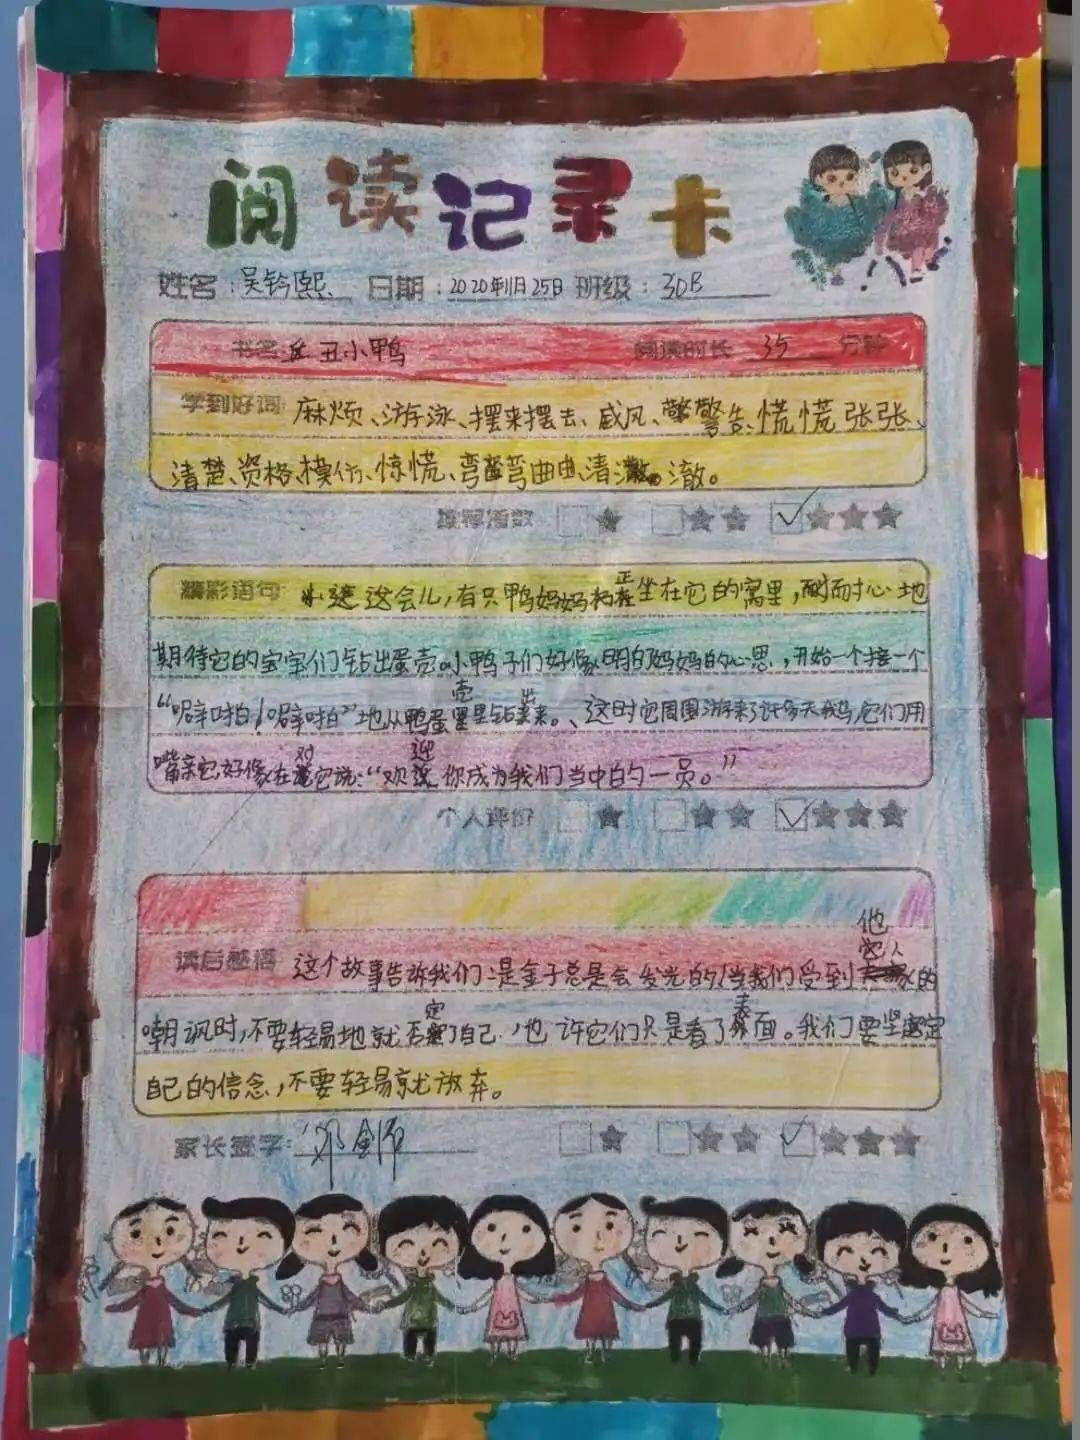 阅读记录卡
姓名：吴钤熙 日期：2020年11月25日 班级：30B
书名 丑小鸭 阅读时长 35 分钟
学到好词 麻烦、游泳、摆来摆去、威风、警告、慌慌张张、
清楚、资格、模仿、惊慌、弯弯曲曲、清澈。
推荐指数
精彩语句 这会儿，有只鸭妈妈正坐在它的窝里，耐心地
期待它的宝宝们钻出蛋壳。小鸭子们好像明白妈妈的心思，开始一个接一个
“噼啪！噼啪”地从鸭蛋壳里钻出来。、这时它周围游来了许多天鹅，它们用
嘴亲它，好像在对它说：“欢迎你成为我们当中的一员。”
个人评价
读后感悟 这个故事告诉我们：是金子总是会发光的，当我们受到他人的
嘲讽时，不要轻易地就否定了自己，也许它们只是看了表面。我们要坚定
自己的信念，不要轻易就放弃。
家长签字：